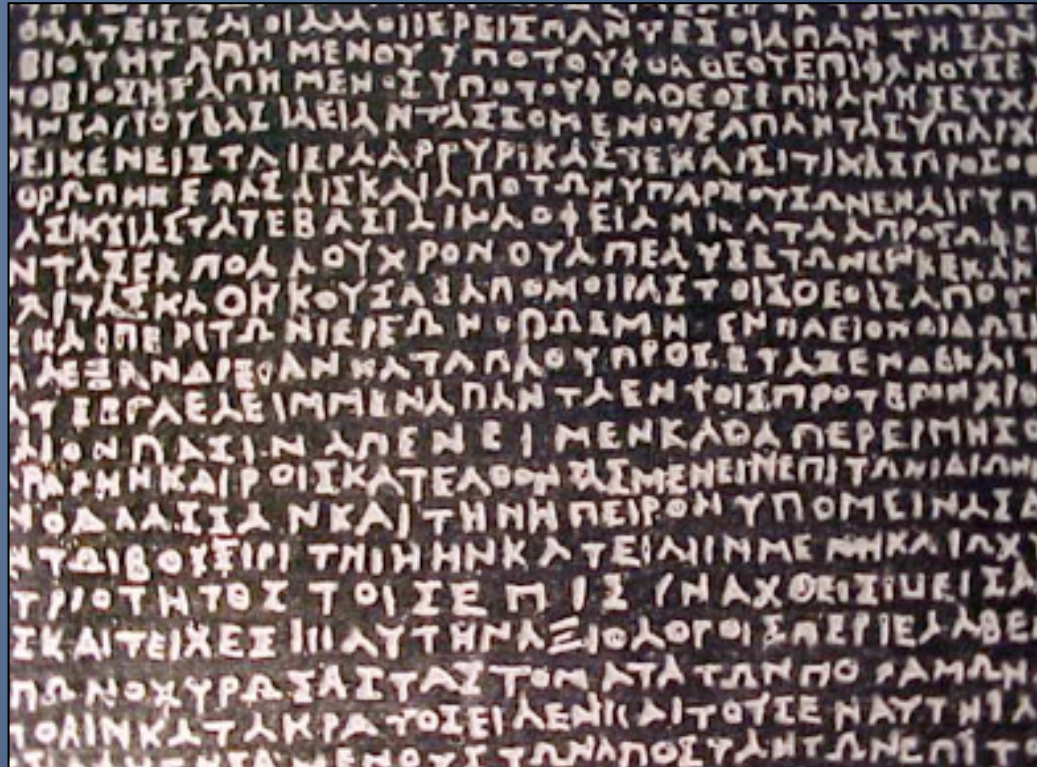 ΟΙΑΛΛΟΙΙΕΡΕΙΣΠΑΝΤΕΣΟΙΑΠΑΝΤΗΣΑΝ
ΒΙΟΥΗΓΑΠΗΜΕΝΟΥΥΠΟΤΟΥΦΘΑΘΕΟΥΕΠΙΦΑΝΟΥΣΕΥ
ΝΟΒΙΟΣΗΓΑΠΗΜΕΝΟΣΥΠΟΤΟΥΦΘΑΘΕΟΣΕΠΙΦΑΝΗΣΕΥΧΑ
ΗΝΕΑΥΤΟΥΒΑΣΙΛΕΙΑΝΤΑΣΣΟΜΕΝΟΥΣΑΠΑΝΤΑΣΥΠΑΡΧ
ΕΙΚΕΝΕΙΣΤΑΙΕΡΑΑΡΓΥΡΙΚΑΣΤΕΚΑΙΣΙΤΙΚΑΣΠΡΟΣΟ
ΚΑΙΑΠΟΤΩΝΥΠΑΡΧΟΥΣΩΝΕΝΑΙΓΥΠ
ΤΑΤΕΒΑΣΙΛΙΚΑΟΦΕΙΛΗΜΑΤΑΑΠΡΟΣΩΦΕΙ
ΝΤΑΣΕΚΠΟΛΛΟΥΧΡΟΝΟΥΑΠΕΛΥΣΕΤΩΝΕΝΚΕΚΛΗ
ΑΙΤΑΣΚΑΘΗΚΟΥΣΑΣΑΠΟΜΟΙΡΑΣΤΟΙΣΘΕΟΙΣΑΠΟΤ
ΕΚΑΙΠΕΡΙΤΩΝΙΕΡΕΩΝΟΠΩΣΜΗΘΕΝΠΛΕΙΟΝΔΙΔΩΣΙ
ΑΛΕΞΑΝΔΡΕΙΑΝΚΑΤΑΠΛΟΥΠΡΟΣΕΤΑΞΕΝΔΕΚΑΙΤ
ΑΤΕΓΛΕΛΕΙΜΜΕΝΑΠΑΝΤΑΕΝΤΟΙΣΠΡΟΤΕΡΟΝΧΡΟ
ΑΙΟΝΠΑΣΙΝΑΠΕΝΕΙΜΕΝΚΑΘΑΠΕΡΕΡΜΗΣΟ
ΑΡΑΧΗΝΚΑΙΡΟΙΣΚΑΤΕΛΘΟΝΤΑΣΜΕΝΕΙΝΕΠΙΤΩΝΙΔΙΩΝ
ΝΘΑΛΑΣΣΑΝΚΑΙΤΗΝΗΠΕΙΡΟΝΥΠΟΜΕΙΝΑΣΔ
ΝΤΩΙΒΟΥΣΙΡΙΤΗΙΗΗΝΚΑΤΕΙΛΗΜΜΕΝΗΚΑΙΩΧΥ
ΤΡΙΟΤΗΤΟΣΤΟΙΣΕΠΙΣΥΝΑΧΘΕΙΣΙΝΕΙΣΑ
ΣΚΑΙΤΕΙΧΕΣΙΝΑΥΤΗΝΑΞΙΟΛΟΓΟΙΣΠΕΡΙΕΛΑΒΕ
ΠΩΝΟΧΥΡΩΣΑΣΤΑΣΤΟΜΑΤΑΤΩΝΠΟΤΑΜΩΝ
ΠΟΛΙΝΚΑΤΑΚΡΑΤΟΣΕΙΛΕΝΚΑΙΤΟΥΣΕΝΑΥΤΗΙΑ